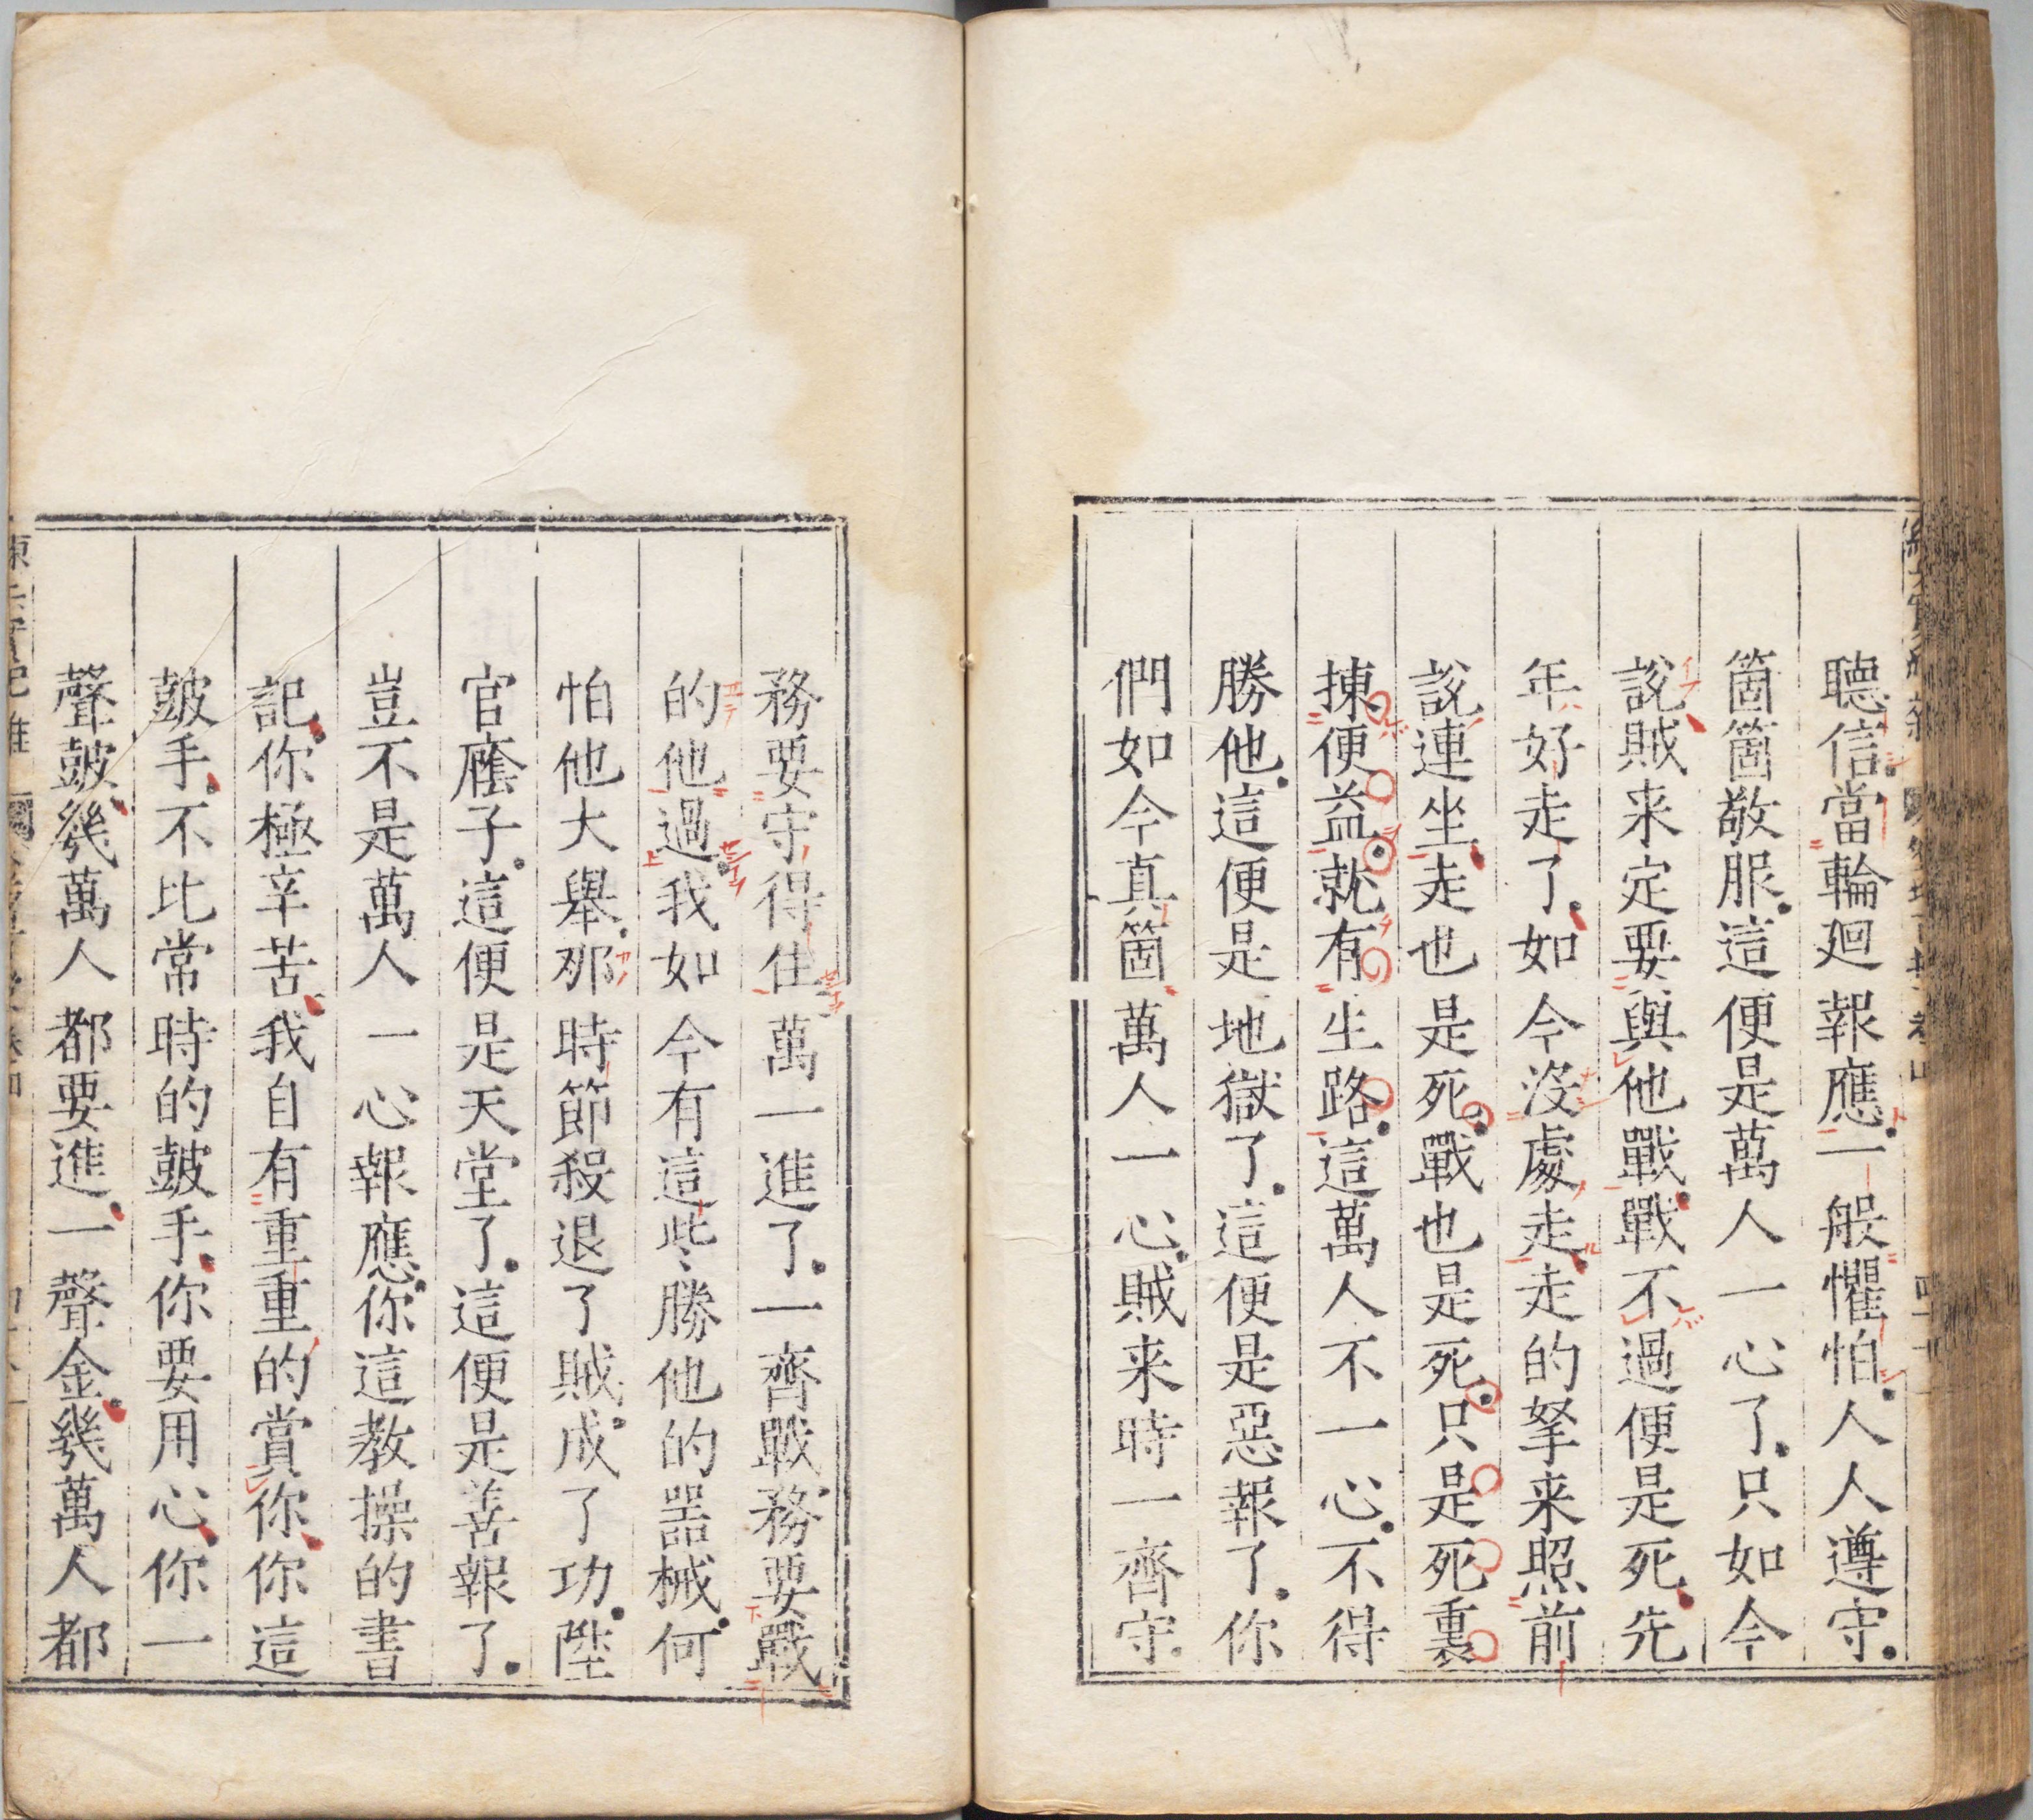 聽信當輪廻報應一般懼怕人人遵守
箇箇敬服這便是萬人一心了只如今
說賊来定要與他戰戰不過便是死先
年好走了如今沒處走走的拏来照前
說連坐走也是死戰也是死只是死裏
揀便益就有生路這萬人不一心不得
勝他這便是地獄了這便是惡報了你
們如今真箇萬人一心賊来時一齊守
務要守得住萬一進了一齊戰務要戰
的他過我如今有這些勝他的噐械何
怕他大舉那時節殺退了賊成了功陞
官廕子這便是天堂了這便是善報了
豈不是萬人一心報應你這教操的書
記你極辛苦我自有重重的賞你你這
皷手不比常時的皷手你要用心你一
聲皷幾萬人都要進一聲金幾萬人都